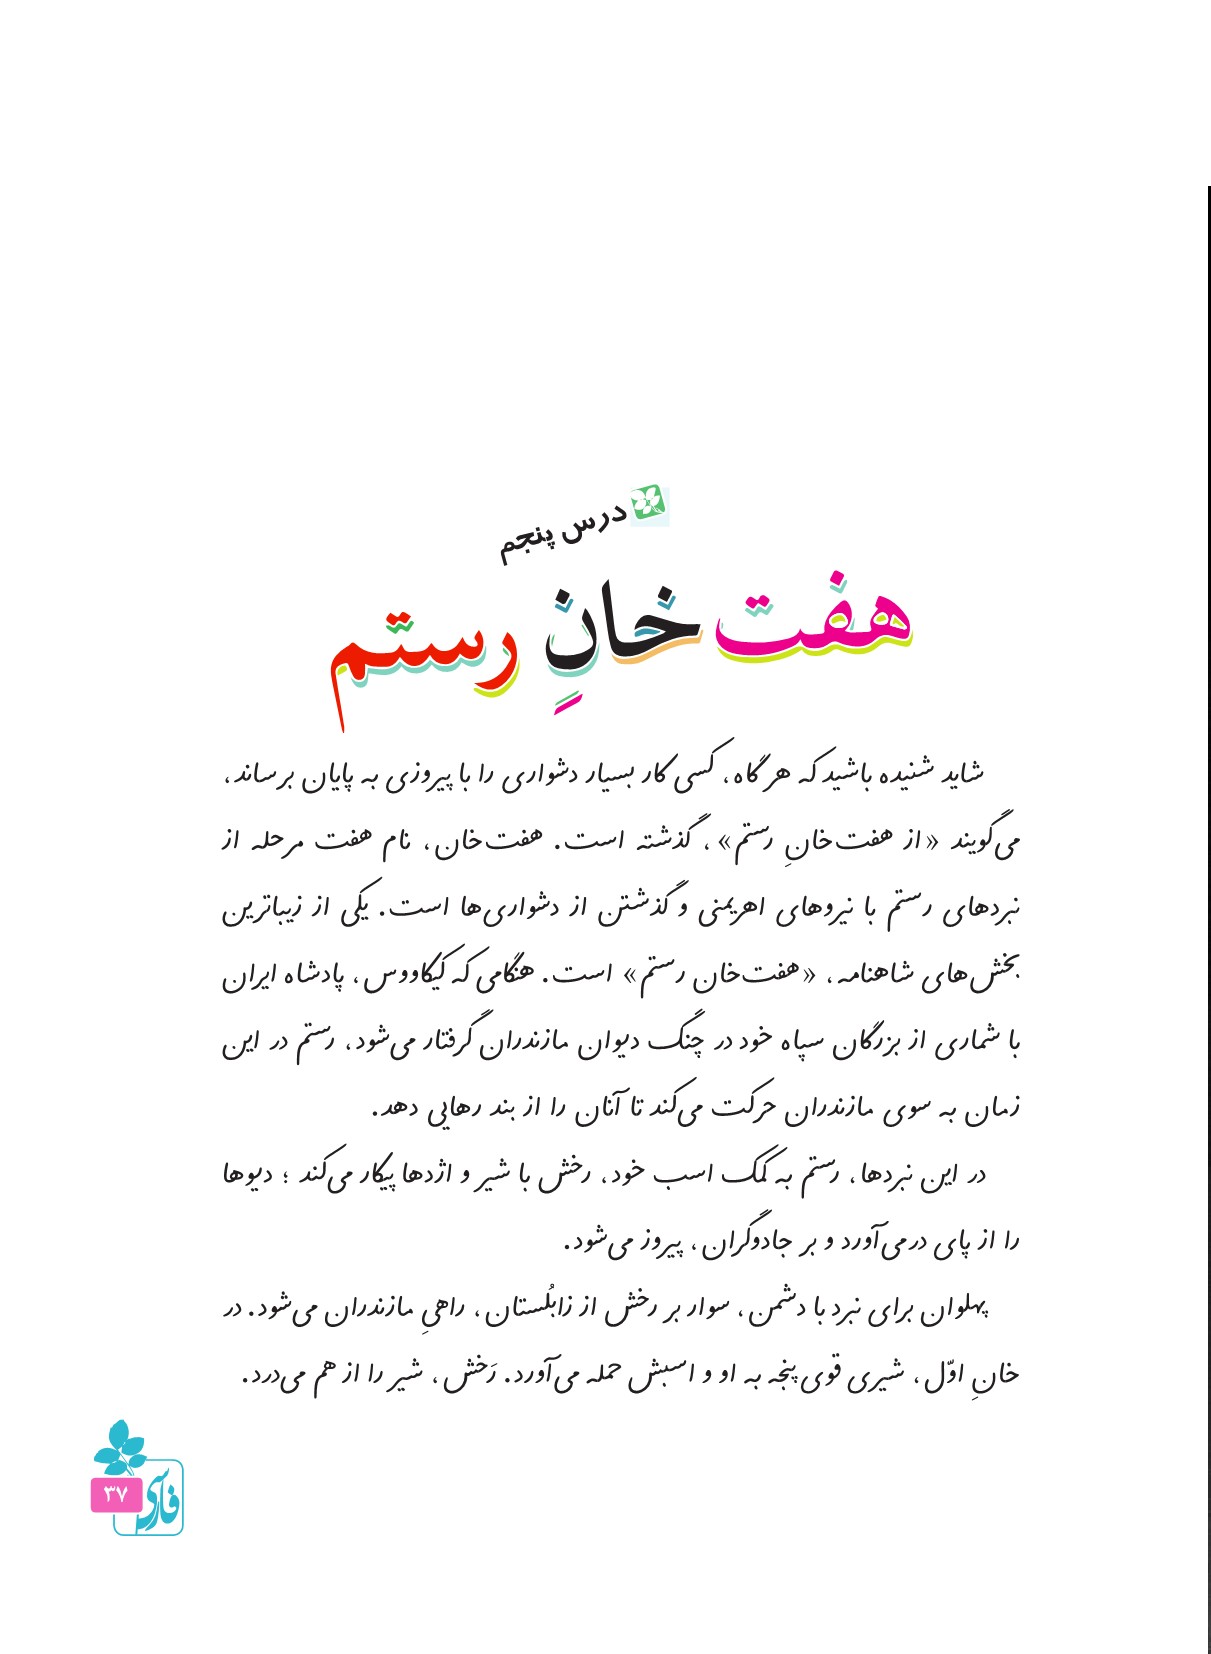 درس پنجم
هفت خانِ رستم
شاید شنیده باشید که هر گاه، کسی کار بسیار دشواری را با پیروزی به پایان برساند،
می‌گویند «از هفت‌خانِ رستم»، گذشته است. هفت‌خان، نام هفت مرحله از
نبردهای رستم با نیروهای اهریمنی و گذشتن از دشواری‌ها است. یکی از زیباترین
بخش‌های شاهنامه، «هفت‌خان رستم» است. هنگامی که کیکاووس، پادشاه ایران
با شماری از بزرگان سپاه خود در چنگ دیوان مازندران گرفتار می‌شود، رستم در این
زمان به سوی مازندران حرکت می‌کند تا آنان را از بند رهایی دهد.
در این نبردها، رستم به کمک اسب خود، رخش با شیر و اژدها پیکار می‌کند ؛ دیوها
را از پای درمی‌آورد و بر جادوگران، پیروز می‌شود.
پهلوان برای نبرد با دشمن، سوار بر رخش از زابُلستان، راهیِ مازندران می‌شود. در
خانِ اوّل، شیری قوی‌پنجه به او و اسبش حمله می‌آورد. رَخش، شیر را از هم می‌درد.
فارسی
۳۷